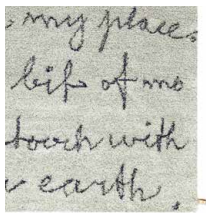 my place.
of me
touch with
earth.